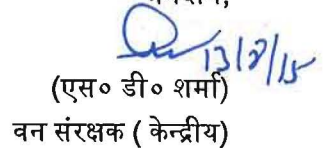 13/8/15
(एस० डी० शर्मा)
वन संरक्षक ( केन्द्रीय)